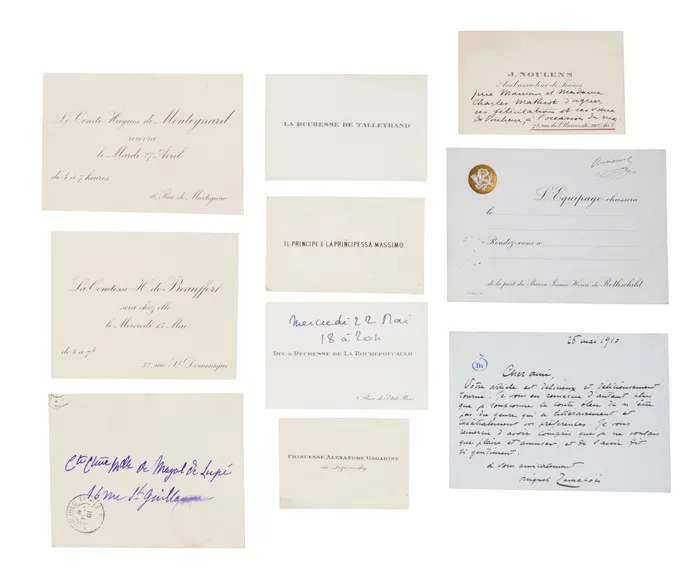 Le Comte Hugues de Monteynard
recevra
le Mardi 27 Avril
de 4 à 7 heures
Rue de Martignac
La Comtesse H. de Beauffort
sera chez elle
le Mercredi 15 Mai
de 4 à 7h
rue St Dominique
Cte Ctesse de Mayol de Lupé
16 rue St Guillaume
LA DUCHESSE DE TALLEYRAND
IL PRINCIPE E LA PRINCIPESSA MASSIMO
Mercredi 22 Mai
18 à 20h
DUC & DUCHESSE DE LA ROCHEFOUCAULD
PRINCESSE ALEXANDRE GAGARINE
J. NOULENS
Ambassadeur de France
prie Monsieur et Madame
Charles d'agréer
ses félicitations et ses vœux
de bonheur, à l'occasion du
rue de l'Université
L'Équipage chassera
le
Rendez-vous à
de la part du Baron James Henri de Rothschild
25 mai 1910
Cher ami,
Votre article est délicieux et délicieusement
tourné. Je vous en remercie d'autant plus
que je
pas du genre qui a littérairement et
théâtralement vos préférences. Je vous
remercie d'avoir compris que je ne voulais
que plaire et amuser et de l'avoir dit
si gentiment.
à vous amicalement
Miguel Zamacoïs